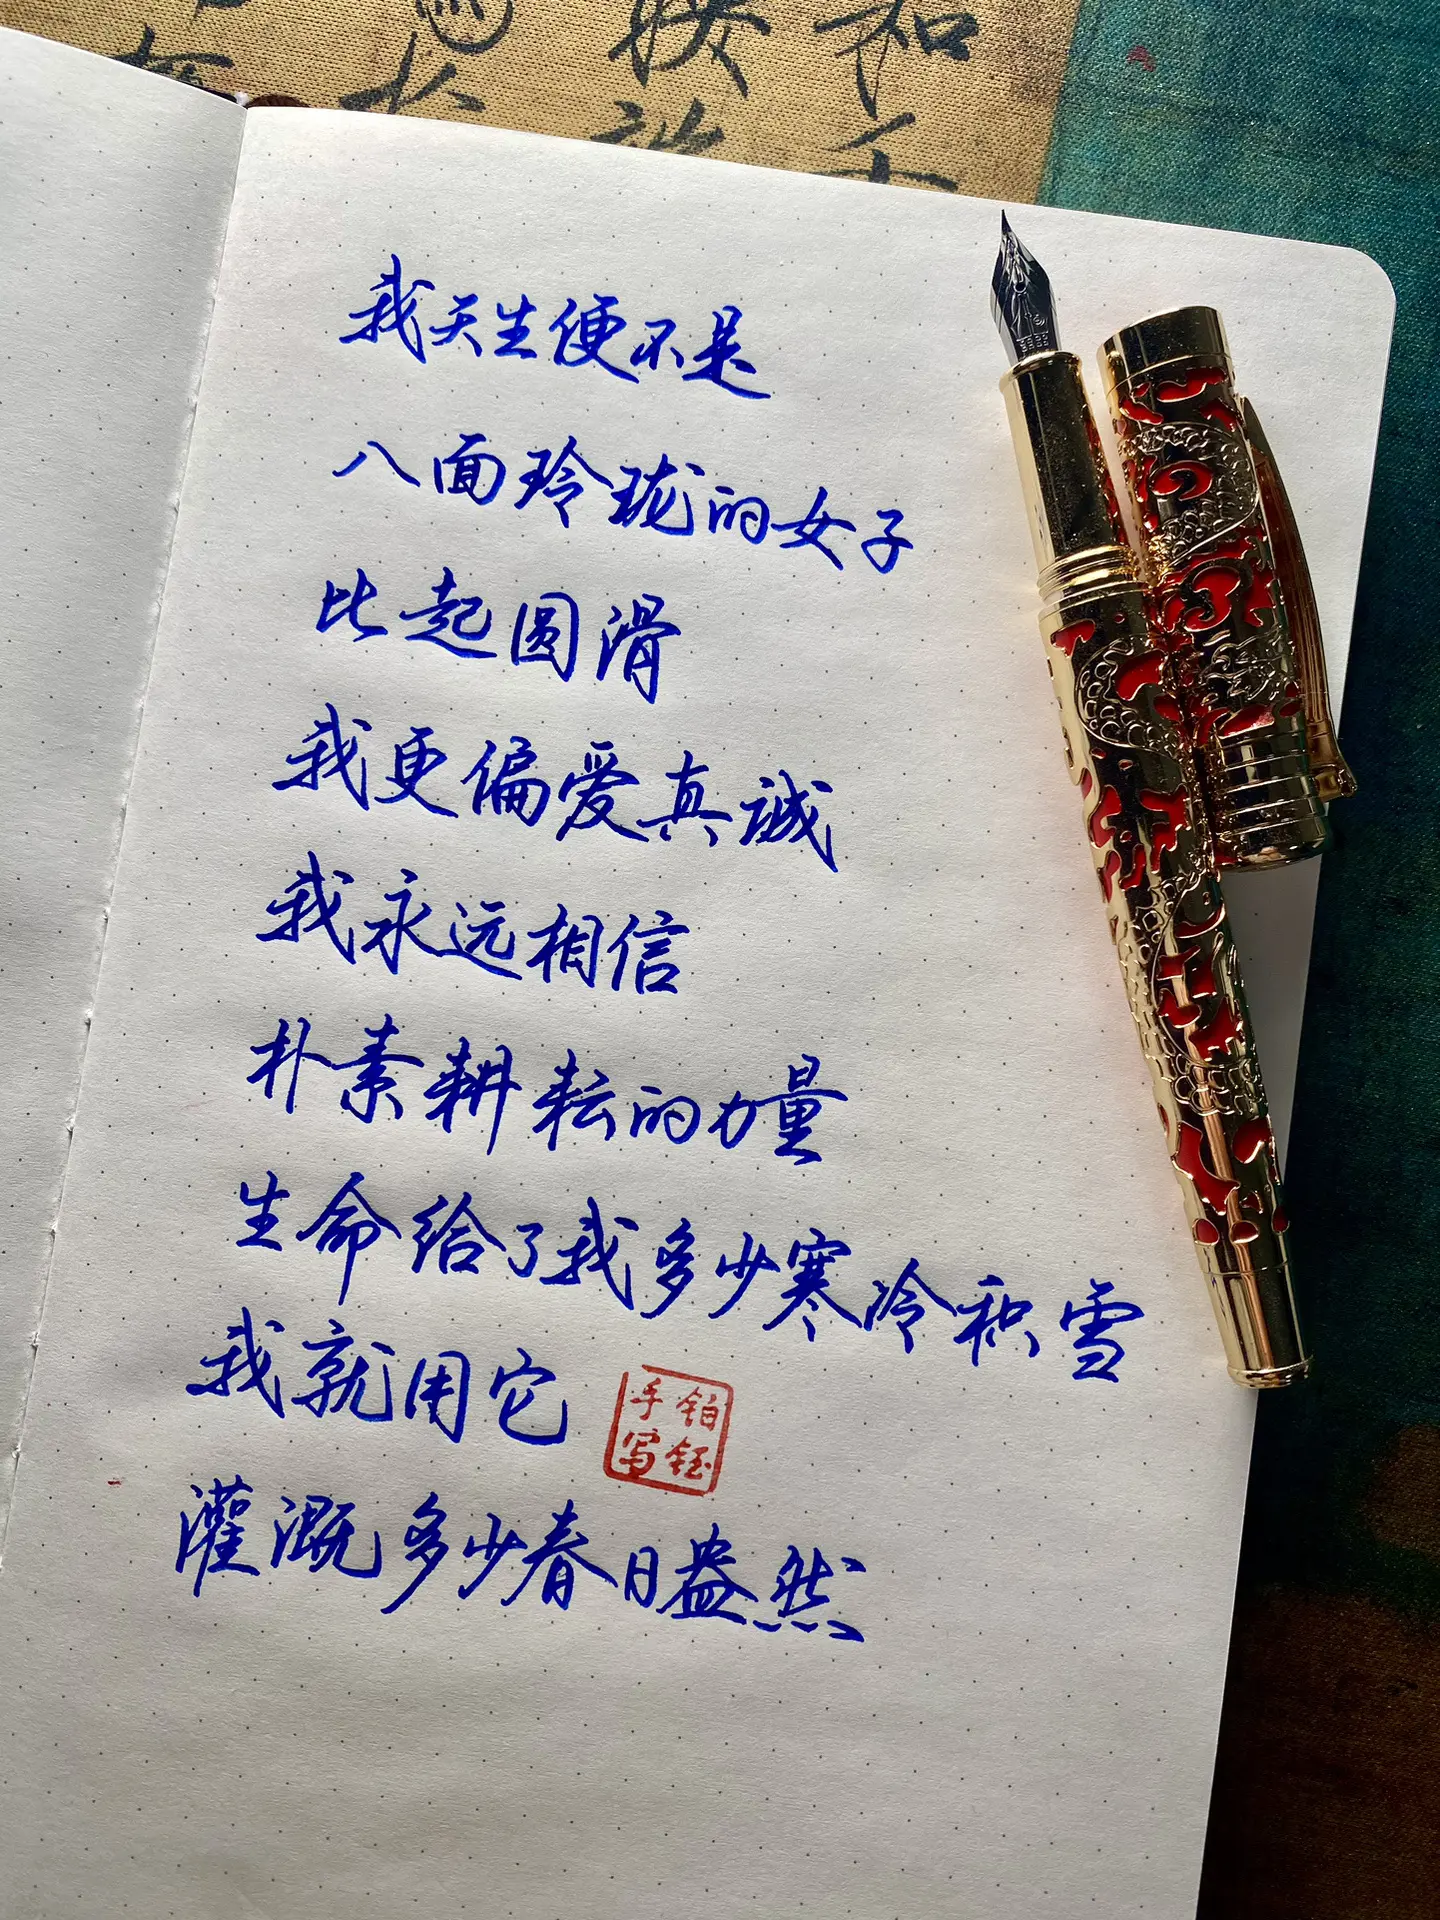 我天生便不是
八面玲珑的女子
比起圆滑
我更偏爱真诚
我永远相信
朴素耕耘的力量
生命给了我多少寒冷积雪
我就用它
铂钰
手写
灌溉多少春日盎然